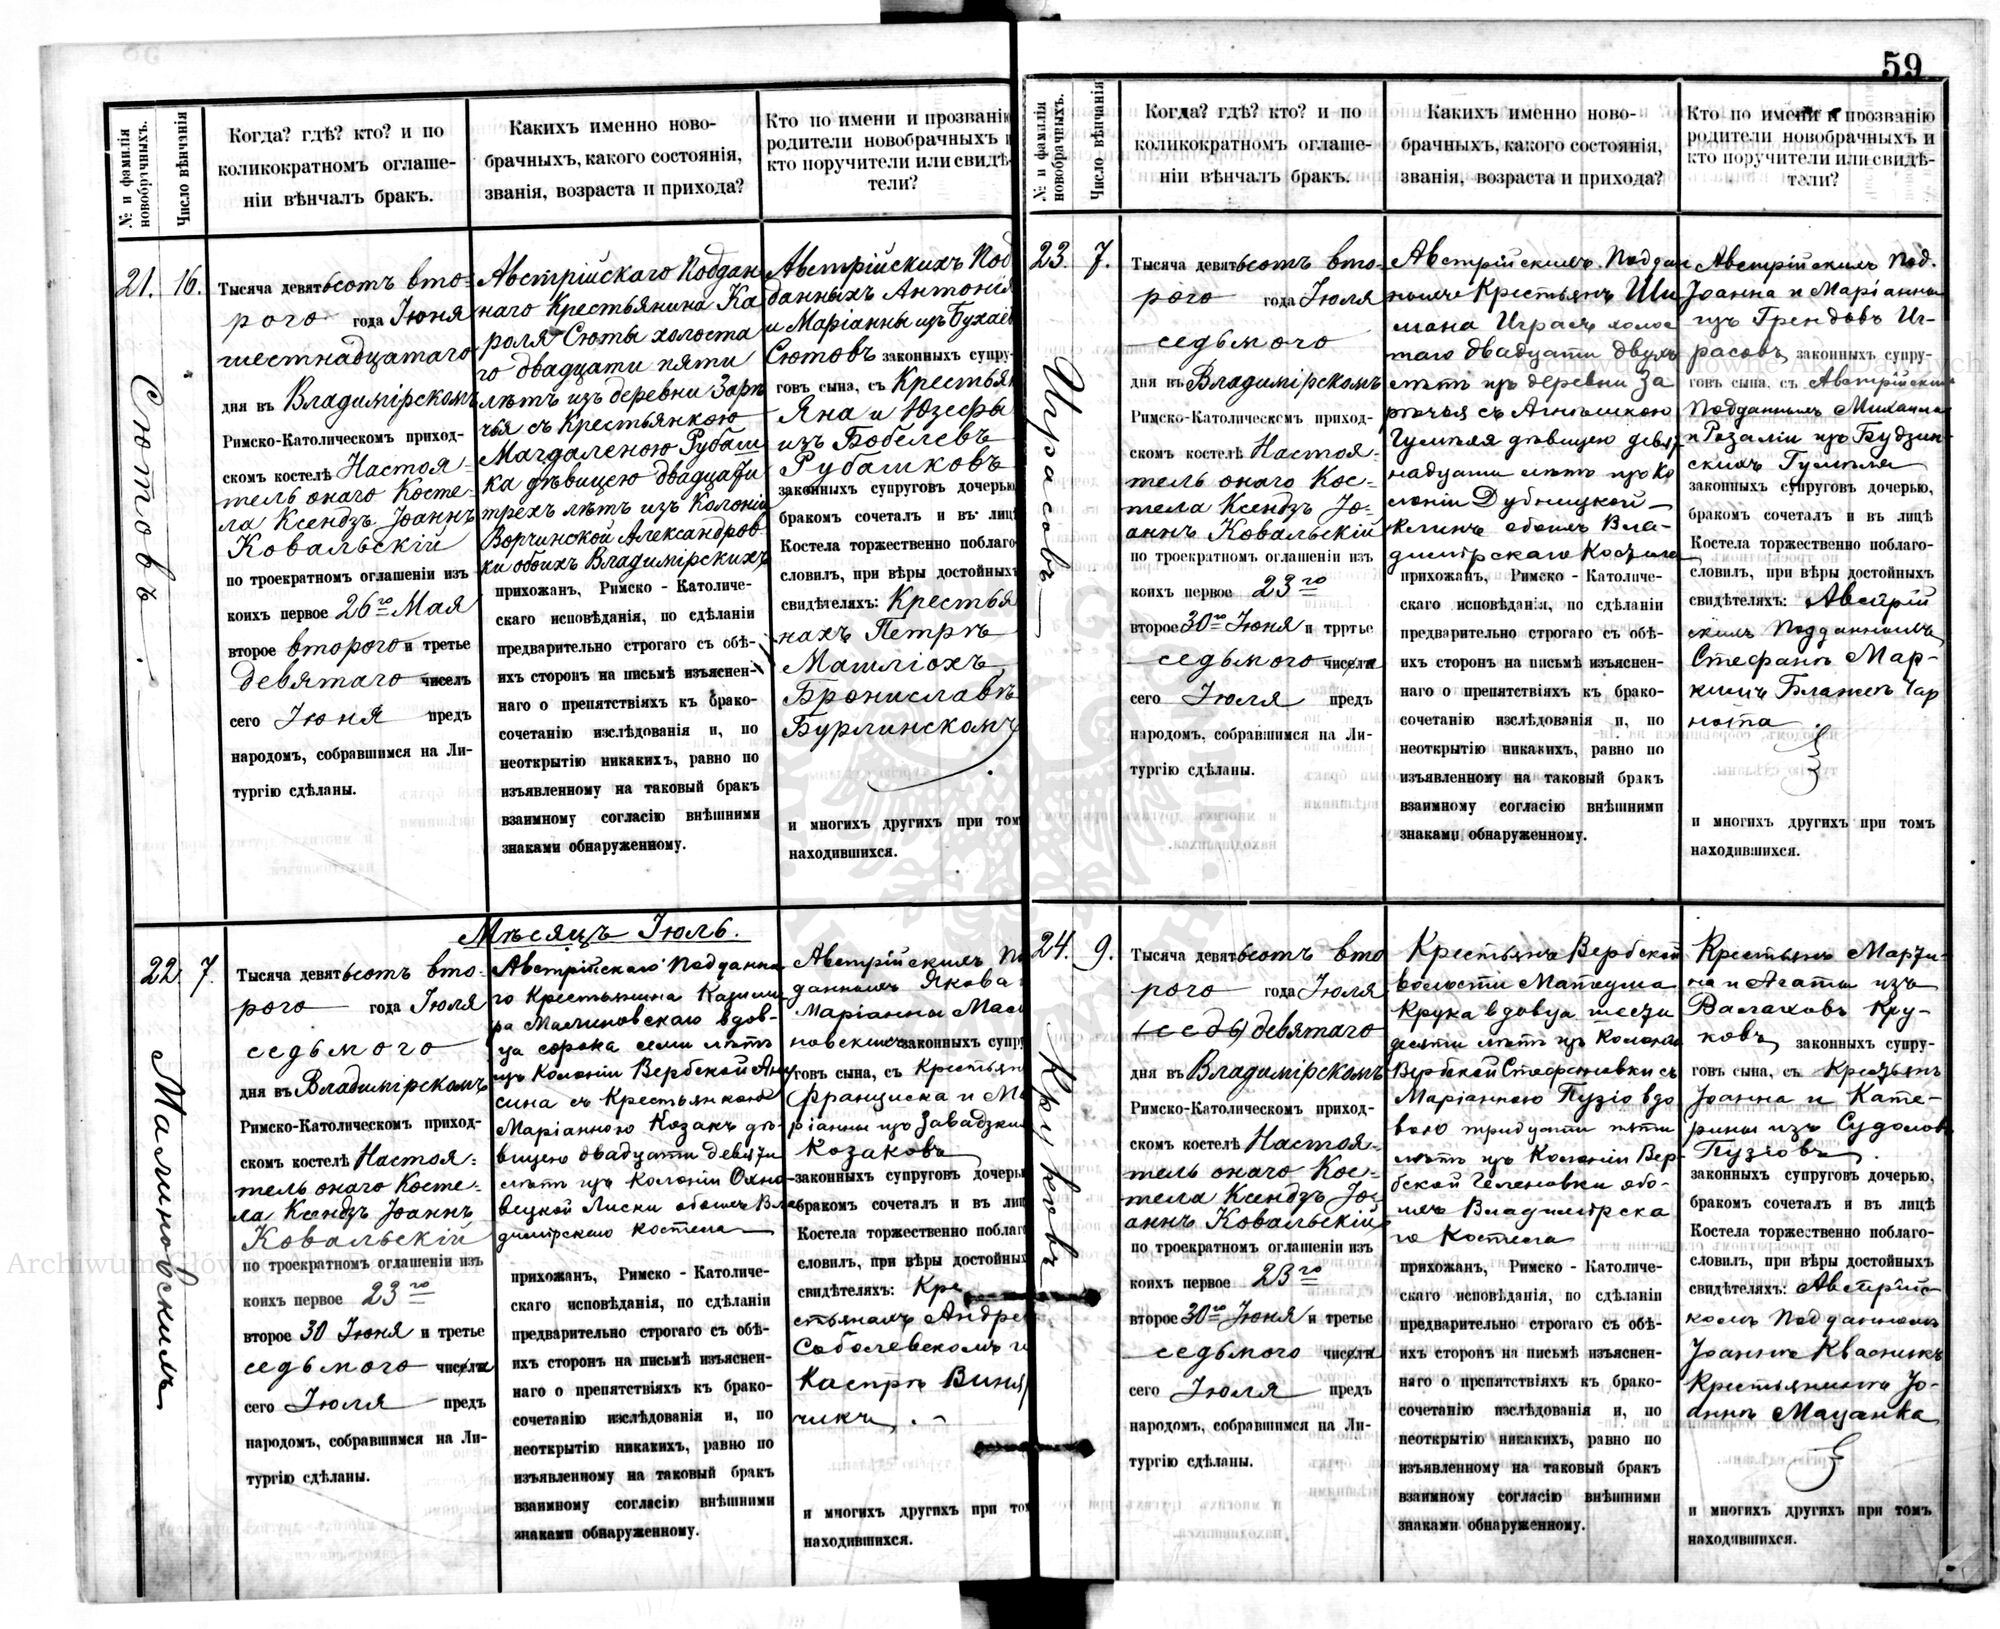 59
№ и фамилія новобрачныхъ.
Число вѣнчанія
Когда? гдѣ? кто? и по
коликократномъ оглаше-
ніи вѣнчалъ бракъ.
Какихъ именно ново-
брачныхъ, какого состоянія,
званія, возраста и прихода?
Кто по имени и прозванію
родители новобрачныхъ и
кто поручители или свидѣ-
тели?
21.
16.
Сютовъ.
Тысяча девятьсотъ вто-
рого года Іюня
шестнадцатаго
дня въ Владимірскомъ
Римско-Католическомъ приход-
скомъ костелѣ Настоя-
тель онаго Косте-
ла Ксендзъ Іоаннъ
Ковальскій
по троекратномъ оглашеніи изъ
коихъ первое 26го Мая
второе второго и третье
девятаго чиселъ
сего Іюня предъ
народомъ, собравшимся на Ли-
тургію сдѣланы.
Австрійскаго Поддан
наго Крестьянина Ка
роля Сюты холоста
го двадцати пяти
лѣтъ изъ деревни Зарѣ
чья съ Крестьянкою
Магдаленою Рубаш
ка дѣвицею двадцати
трехъ лѣтъ изъ Колоніи
Ворчинской Александров
ки обоихъ Владимірскихъ
прихожанъ, Римско - Католиче-
скаго исповѣданія, по сдѣланіи
предварительно строгаго съ обѣ-
ихъ сторонъ на письмѣ изъяснен-
наго о препятствіяхъ къ брако-
сочетанію изслѣдованія и, по
неоткрытію никакихъ, равно по
изъявленному на таковый бракъ
взаимному согласію внѣшними
знаками обнаруженному.
Австрійскихъ Под
данныхъ Антонія
и Маріанны изъ
Сютовъ законныхъ супру-
говъ сына, съ Крестьян
Яна и Юзефы
изъ Бобелевъ
Рубашковъ
законныхъ супруговъ дочерью,
бракомъ сочеталъ и въ лицѣ
Костела торжественно поблаго-
словилъ, при вѣры достойныхъ
свидѣтеляхъ: Крестья
нахъ Петрѣ
Брониславѣ
Бурлинскомъ
и многихъ другихъ при томъ
находившихся.
Мѣсяцъ Іюль.
22.
7.
Малиновскихъ
Тысяча девятьсотъ вто-
рого года Іюля
седьмого
дня въ Владимірскомъ
Римско-Католическомъ приход-
скомъ костелѣ Настоя-
тель онаго Косте-
ла Ксендзъ Іоаннъ
Ковальскій
по троекратномъ оглашеніи изъ
коихъ первое 23го
второе 30 Іюня и третье
седьмого числа
сего Іюля предъ
народомъ, собравшимся на Ли-
тургію сдѣланы.
Австрійскаго Подданна
го Крестьянина Казими
ра Малиновскаго вдов-
ца сорока семи лѣтъ
изъ Колоніи Вербской
съ Крестьянкою
Маріанною Козакъ дѣ
вицею двадцати девяти
лѣтъ изъ Колоніи Охно
вецкой Лиски обоихъ Вла
димірскаго костела
прихожанъ, Римско - Католиче-
скаго исповѣданія, по сдѣланіи
предварительно строгаго съ обѣ-
ихъ сторонъ на письмѣ изъяснен-
наго о препятствіяхъ къ брако-
сочетанію изслѣдованія и, по
неоткрытію никакихъ, равно по
изъявленному на таковый бракъ
взаимному согласію внѣшними
знаками обнаруженному.
Австрійскихъ По
данныхъ Якова и
Маріанны Мали
новскихъ законныхъ супру
говъ сына, съ Крестьян
Франциска и Ма
ріанны изъ Завадзки
Козаковъ
законныхъ супруговъ дочерью
бракомъ сочеталъ и въ лицѣ
Костела торжественно поблаго
словилъ, при вѣры достойныхъ
свидѣтеляхъ: Кре
стьянахъ Андре
Соболевскомъ и
Каспрѣ Виня
чикъ.
и многихъ другихъ при томъ
находившихся.
№ и фамилія новобрачныхъ.
Число вѣнчанія
Когда? гдѣ? кто? и по
коликократномъ оглаше-
ніи вѣнчалъ бракъ.
Какихъ именно ново-
брачныхъ, какого состоянія,
званія, возраста и прихода?
Кто по имени и прозванію
родители новобрачныхъ и
кто поручители или свидѣ-
тели?
23.
7.
Играсовъ
Тысяча девятьсотъ вто-
рого года Іюля
седьмого
дня въ Владимірскомъ
Римско-Католическомъ приход-
скомъ костелѣ Настоя-
тель онаго Кос-
тела Ксендзъ Іо-
аннъ Ковальскій
по троекратномъ оглашеніи изъ
коихъ первое 23го
второе 30го Іюня и третье
седьмого числа
сего Іюля предъ
народомъ, собравшимся на Ли-
тургію сдѣланы.
Крестьянъ Ши
мана Играсъ холос
таго двадцати двухъ
лѣтъ изъ деревни За
рѣчья съ Агнѣшкою
дѣвицею девят
надцати лѣтъ изъ Ко
лоніи Дубницкой
Клинъ обоихъ Вла-
димірскаго Костела
прихожанъ, Римско - Католиче-
скаго исповѣданія, по сдѣланіи
предварительно строгаго съ обѣ-
ихъ сторонъ на письмѣ изъяснен-
наго о препятствіяхъ къ брако-
сочетанію изслѣдованія и, по
неоткрытію никакихъ, равно по
изъявленному на таковый бракъ
взаимному согласію внѣшними
знаками обнаруженному.
Австрійскихъ Под.
Іоанна и Маріанны
изъ Грендовъ Иг-
расовъ законныхъ супру-
говъ сына, съ Австрійскихъ
Подданныхъ Михаила
и Розаліи изъ Будзин
скихъ
законныхъ супруговъ дочерью,
бракомъ сочеталъ и въ лицѣ
Костела торжественно поблаго-
словилъ, при вѣры достойныхъ
свидѣтеляхъ: Австрій
скихъ Подданныхъ
Стефанъ Мар-
нота
и многихъ другихъ при томъ
находившихся.
24.
9.
Круковъ
Тысяча девятьсотъ вто
рого года Іюля
(седь) девятаго
дня въ Владимірскомъ
Римско-Католическомъ приход-
скомъ костелѣ Настоя-
тель онаго Кос-
тела Ксендзъ Іо-
аннъ Ковальскій
по троекратномъ оглашеніи изъ
коихъ первое 23го
второе 30го Іюня и третье
седьмого числа
сего Іюля предъ
народомъ, собравшимся на Ли-
тургію сдѣланы.
Крестьянъ Вербской
волости Матеуша
Крука вдовца шести
десяти лѣтъ изъ Колоніи
Вербской Стефановки съ
Маріанною Пузіо вдо
вою тридцати пяти
лѣтъ изъ Колоніи Вер-
бской Геленовки обо-
ихъ Владимірска
го Костела
прихожанъ, Римско - Католиче-
скаго исповѣданія, по сдѣланіи
предварительно строгаго съ обѣ-
ихъ сторонъ на письмѣ изъяснен-
наго о препятствіяхъ къ брако-
сочетанію изслѣдованія и, по
неоткрытію никакихъ, равно по
изъявленному на таковый бракъ
взаимному согласію внѣшними
знаками обнаруженному.
Крестьянъ Марти-
на и Агаты изъ
Валаховъ Кру-
ковъ законныхъ супру-
говъ сына, съ Крестьян
Іоанна и Кате-
рины изъ Судоловъ
Пузіовъ
законныхъ супруговъ дочерью,
бракомъ сочеталъ и въ лицѣ
Костела торжественно поблаго-
словилъ, при вѣры достойныхъ
свидѣтеляхъ: Австрійс-
комъ Подданномъ
Іоаннѣ Квасникъ
Крестьянинѣ Іо-
аннѣ Мацанка
и многихъ другихъ при томъ
находившихся.
Archiwum Główne Akt Dawnych
Archiwum Główne Akt Dawnych